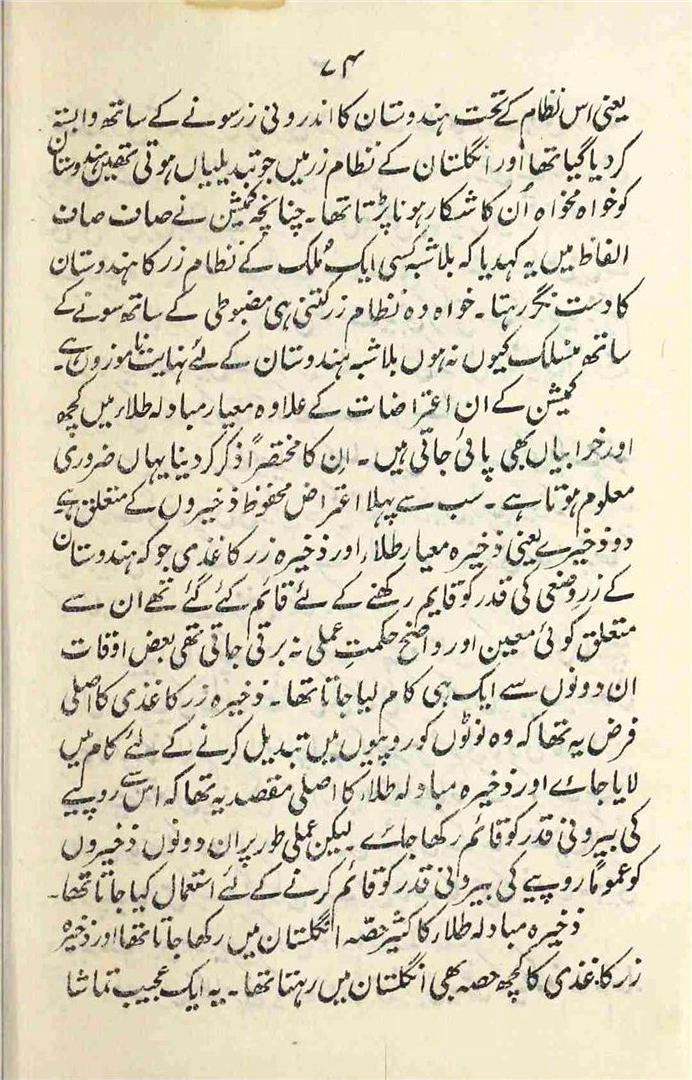 ۷۴
یعنی اس نظام کے تحت ہندوستان کا اندرونی زرسونے کے ساتھ وابستہ
کردیا گیا تھا اور انگلستان کے نظام زر میں جو تبدیلیاں ہوتی تھیں ہندوستان
کو خواہ مخواہ اُن کا شکار ہونا پڑتا تھا۔ چنانچہ کمیشن نے صاف صاف
الفاظ میں یہ کہدیا کہ بلا شبہ کسی ایک مُلک کے نظام زر کا ہندوستان
کا دست نگر رہتا۔ خواہ وہ نظام زر کتنی ہی مضبوطی کے ساتھ سونے کے
ساتھ منسلک کیوں نہ ہوں بلا شبہ ہندوستان کے لئے نہایت ناموزوں ہے۔
کمیشن کے ان اعتراضات کے علاوہ معیار مبادلہ طلاء میں کچھ
اور خرابیاں بھی پائی جاتی ہیں۔ ان کا مختصراً ذکر کر دینا یہاں ضروری
معلوم ہوتا ہے۔ سب سے پہلا اعتراض محفوظ ذخیروں کے متعلق ہے
دو ذخیرے یعنی ذخیرہ معیار طلاء اور ذخیرہ زر کاغذی جو کہ ہندوستان
کے زر وضعی کی قدر کو قایم رکھنے کے لئے قائم کئے گئے تھے ان سے
متعلق کوئی معین اور واضح حکمتِ عملی نہ برتی جاتی تھی بعض اوقات
ان دونوں سے ایک ہی کام لیا جاتا تھا۔ ذخیرہ زر کاغذی کا اصلی
فرض یہ تھا کہ وہ نوٹوں کو روپیوں میں تبدیل کرنے کے لئے کام میں
لایا جائے اور ذخیرہ مبادلہ طلاء کا اصلی مقصد یہ تھا کہ اس سے روپیے
کی بیرونی قدر کو قائم رکھا جائے۔ لیکن عملی طور پر ان دونوں ذخیروں
کو عموماً روپیے کی بیرونی قدر کو قائم کرنے کے لئے استعمال کیا جاتا تھا۔
ذخیرہ مبادلہ طلاء کا کثیر حصّہ انگلستان میں رکھا جاتا تھا اور ذخیرہ
زر کاغذی کا کچھ حصہ بھی انگلستان میں رہتا تھا۔ یہ ایک عجیب تماشا